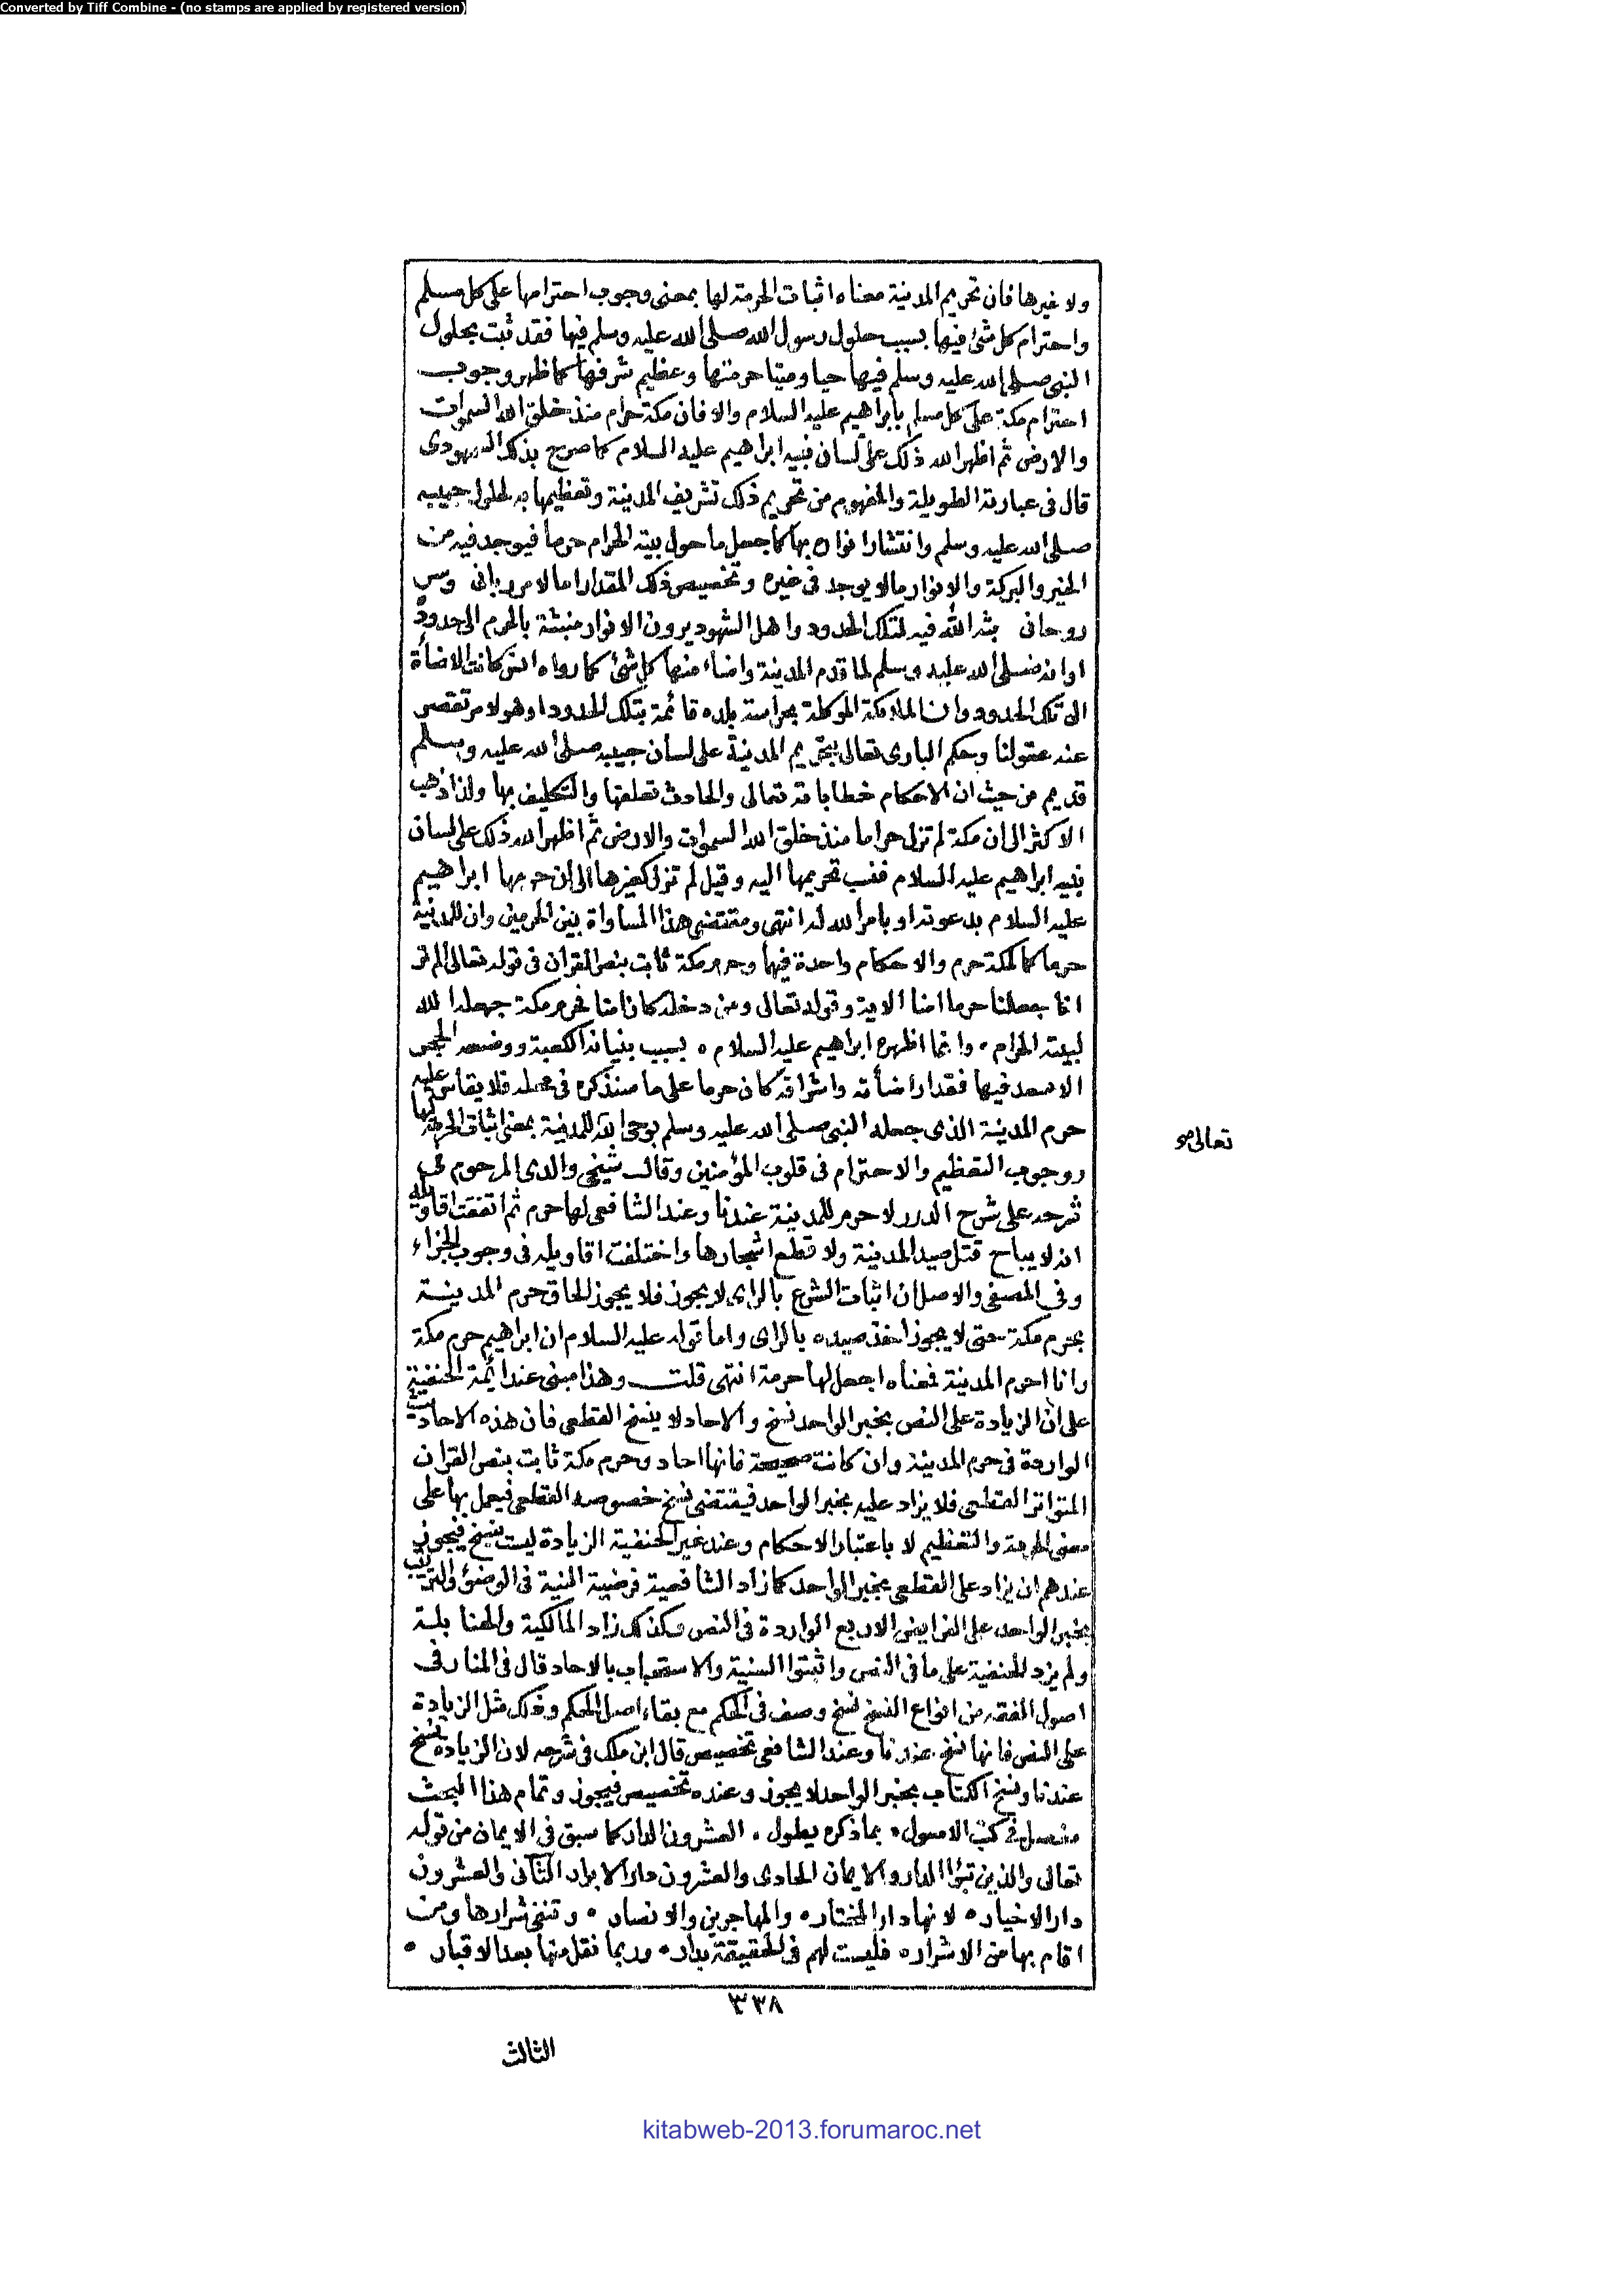 Converted by Tiff Combine - (no stamps are applied by registered version)
ولا غيرها فان تحريم المدينة معناه اثبات الحرمة لها بمعنى وجوب احترامها على كل مسلم
واحترام كل شئ فيها بسبب حلول رسول الله صلى الله عليه وسلم فيها فقد ثبت بحلول
النبى صلى الله عليه وسلم فيها حيا وميتا حرمتها وعظيم شرفها كما ظهر وجوب
احترام مكة على كل مسلم بابراهيم عليه السلام والا فان مكة حرام منذ خلق الله السموات
والارض ثم اظهر الله ذلك على لسان نبيه ابراهيم عليه السلام كما صرح بذلك السمهودى
قال فى عبارته الطويلة والمفهوم من تحريم ذلك تشريف المدينة وتعظيمها به لحلول حبيبه
صلى الله عليه وسلم وانتشار انواره بها كما جعل ما حول بيته الحرام حرما فيوجد فيه من
الخير والبركة والانوار مالا يوجد فى غيره وتخصيص ذلك المقدار اما لامر ربانى وسر
روحانى بثه الله فيه لتلك الحدود واهل الشهود يرون الانوار منبثة بالحرم الى حدوده
اوانه صلى الله عليه وسلم لما قدم المدينة واضاء منها كل شئ كما رواه انس كانت الاضأة
الى تلك الحدود وان الملائكة الموكلة بحراسة بلده قائمة بتلك الحدود او هو لامر تقصر
عند عقولنا وحكم البارى تعالى بتحريم المدينة على لسان حبيبه صلى الله عليه وسلم
قديم من حيث ان الاحكام خطاباته تعالى والحادث تعلقها والتكليف بها ولذا ذهب
الاكثر الى ان مكة لم تزل حراما منذ خلق الله السموات والارض ثم اظهر الله ذلك على لسان
نبيه ابراهيم عليه السلام فنسب تحريمها اليه وقيل لم تزل كغيرها الى ان حرمها ابراهيم
عليه السلام بدعوته او بامر الله له انتهى ومقتضى هذا المساواة بين الحرمين وان للمدينة
حرما كما لمكة حرم والاحكام واحدة فيهما وحرم مكة ثابت بنص القران فى قوله تعالى الم تر
انا جعلنا حرما امنا الاية وقوله تعالى ومن دخله كان امنا فحرم مكة جعله الله
لبيته الحرام • وانما اظهره ابراهيم عليه السلام • بسبب بنيانه الكعبة ووضعه الحجر
الاسعد فيها فقدار اضأته واشراقه كان حرما على ما سنذكره فى محله فلا يقاس عليه
حرم المدينة الذى جعله النبى صلى الله عليه وسلم بوحى الله للمدينة بمعنى اثبات الحرمة لها
تعالى صو
ووجوب التعظيم والاحترام فى قلوب المؤمنين وقال شيخى والدى المرحوم فى
شرحه على شرح الدرر لا حرم للمدينة عندنا وعند الشافعى لها حرم ثم اتفقت اقاويله
انه لا يباح قتل صيد المدينة ولا قطع اشجارها واختلفت اقاويله فى وجوب الجزاء
وفى المصفى والاصل ان اثبات الشرع بالراى لا يجوز فلا يجوز الحاق حرم المدينة
بحرم مكة حتى لا يجوز اخذ صيده بالراى واما قوله عليه السلام ان ابراهيم حرم مكة
وانا احرم المدينة فمعناه اجعل لها حرمة انتهى قلت وهذا مبنى عند ائمة الحنفية
على ان الزيادة على النص بخبر الواحد نسخ والاحاد لا ينسخ القطعى فان هذه الاحاديث
الواردة فى حرم المدينة وان كانت صحيحة فانها احاد وحرم مكة ثابت بنص القران
المتواتر القطعى فلا يزاد عليه بخبر الواحد فيقتضى نسخ خصوصه القطعى فيعمل بها على
معنى الحرمة والتعظيم لا باعتبار الاحكام وعند غير الحنفية الزيادة ليست بنسخ فيجوز
عندهم ان يزاد على القطعى بخبر الواحد كما زاد الشافعية فرضية النية فى الوضئ والترتيب
بخبر الواحد على الفرايض الاربع الواردة فى النص وكذلك زاد المالكية والحنابلة
ولم يزد الحنفية على ما فى النص واثبتوا السنية والاستحباب بالاحاد قال فى المنار فى
اصول الفقه من انواع النسخ نسخ وصف فى الحكم مع بقاء اصل الحكم وذلك مثل الزيادة
على النص فانها نسخ عندنا وعند الشافعى تخصيص قال ابن ملك فى شرحه لان الزيادة نسخ
عندنا ونسخ الكتاب بخبر الواحد لا يجوز وعنده تخصيص فيجوز وتمام هذا المبحث
مفصل فى كتب الاصول • بما ذكره يطول • العشرون الدار كما سبق فى الايمان من قوله
تعالى والذين تبؤا الدار والايمان الحادى والعشرون دار الابرار الثانى والعشرون
دار الاخيار • لانها دار المختار • والمهاجرين والانصار • وتنفى شرارها ومن
اقام بها من الاشرار • فليست لهم فى الحقيقة بدار • وربما نقل منها بعد الاقبار •
٣٣٨
الثالث
kitabweb-2013.forumaroc.net